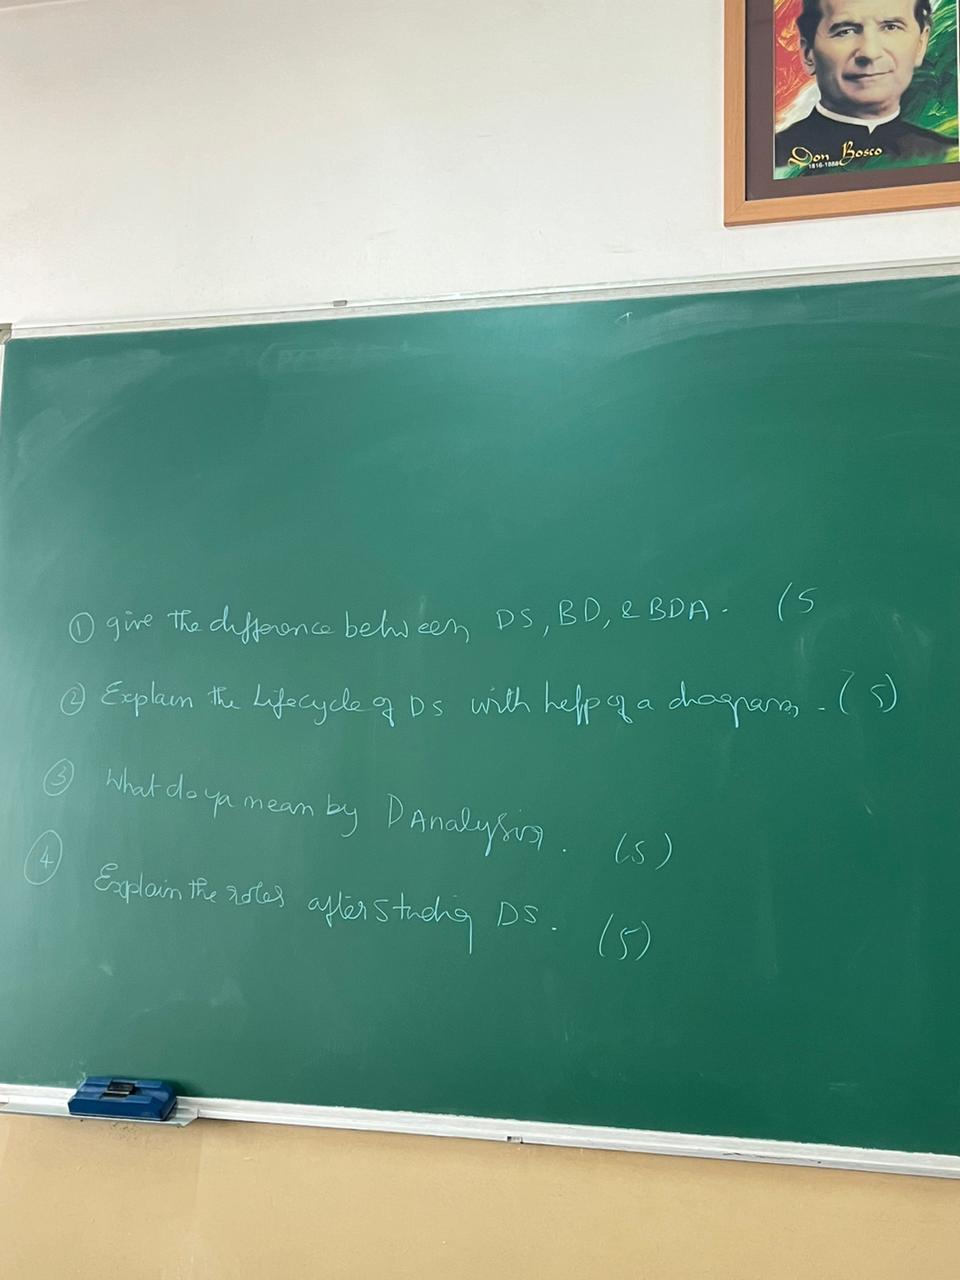 Don Bosco
1816-1888
① give the difference between DS, BD, & BDA. (5
② Explain the Lifecycle of DS with help of a diagram. (5)
③ What do ya mean by D Analysing. (5)
④ Explain the roles after studing DS. (5)